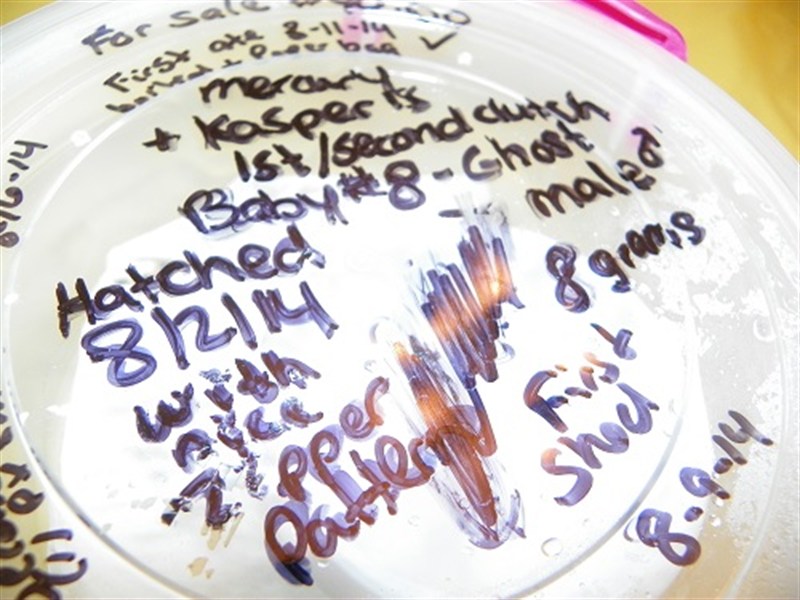 For Sale
First ate 8-11-14
mercury
+ Kasper's
1st/second clutch
Baby #8 - Ghost
male ♂
8 grams
Hatched
8/2/14
with
nice
zipper
pattern
First
Shed
8-9-14